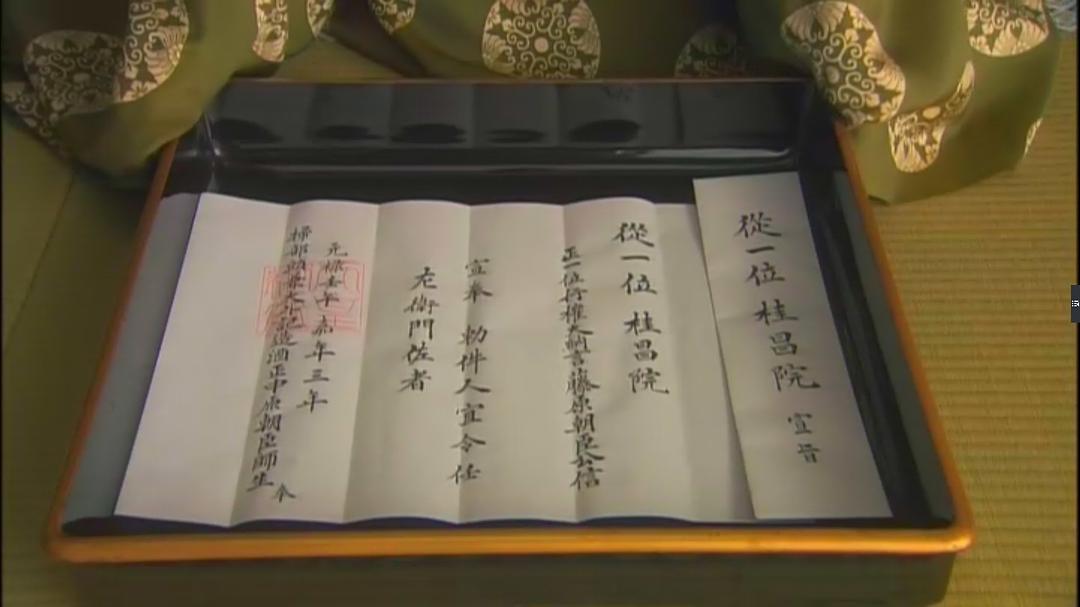 從一位 桂昌院 宣旨
從一位 桂昌院
正一位行權大納言藤原朝臣公信
宣奉 勅件人宜令任
左衛門佐者
元禄 年 年三年
掃部頭兼大外記造酒正中原朝臣師生 奉